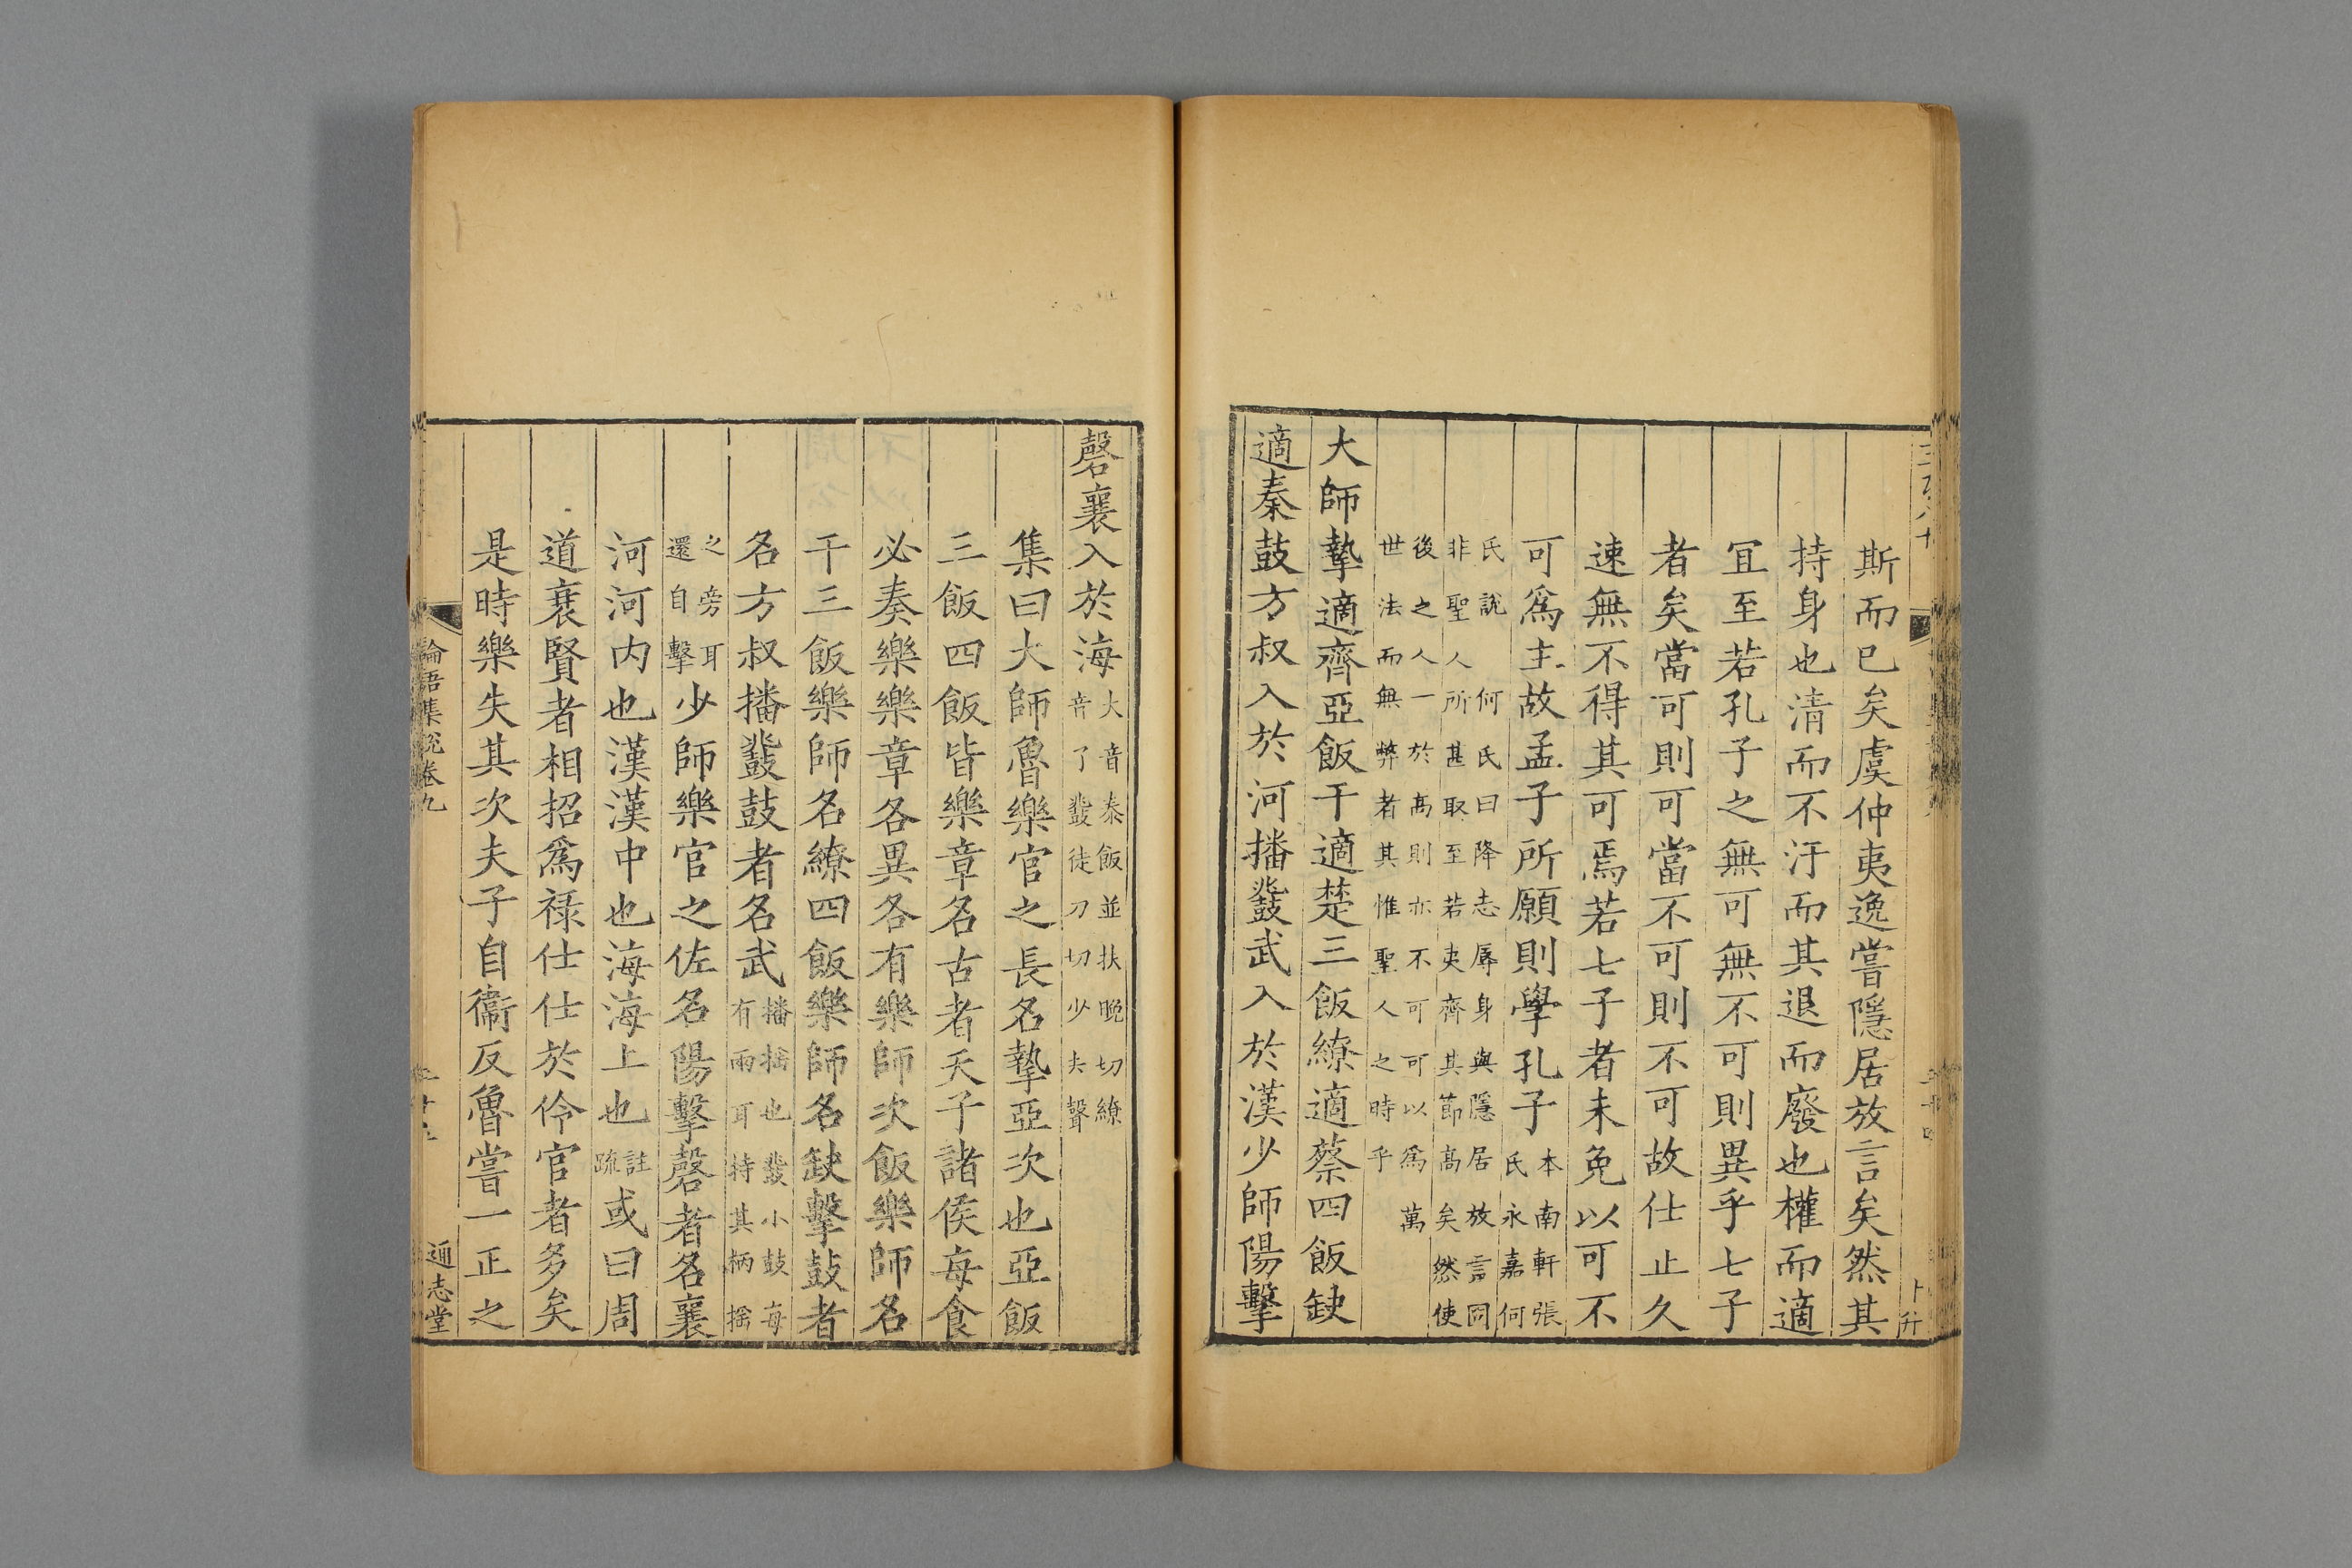 斯而已矣虞仲夷逸嘗隱居放言矣然其
持身也清而不汙而其退而廢也權而適
宜至若孔子之無可無不可則異乎七子
者矣當可則可當不可則不可故仕止久
速無不得其可焉若七子者未免以可不
可爲主故孟子所願則學孔子本南軒張氏永嘉何
氏說何氏曰降志辱身與隱居放言同非聖人所甚取至若夷齊其節髙矣然使
後之人一於髙則亦不可可以爲萬世法而無弊者其惟聖人之時乎
大師摯適齊亞飯干適楚三飯繚適蔡四飯缺
適秦鼓方叔入於河播鼗武入於漢少師陽擊
磬襄入於海大音泰飯並扶晚切繚音了鼗徒刀切少夫聲
集曰大師魯樂官之長名摯亞次也亞飯
三飯四飯皆樂章名古者天子諸侯每食
必奏樂樂章各異各有樂師次飯樂師名
干三飯樂師名繚四飯樂師名缺擊鼓者
名方叔播鼗鼓者名武播搖也鼗小鼓每有兩耳持其柄搖
之旁耳還自擊少師樂官之佐名陽擊磬者名襄
河河内也漢漢中也海海上也註疏或曰周
道衰賢者相招爲禄仕仕於伶官者多矣
是時樂失其次夫子自衞反魯嘗一正之
論語集說卷九
通志堂